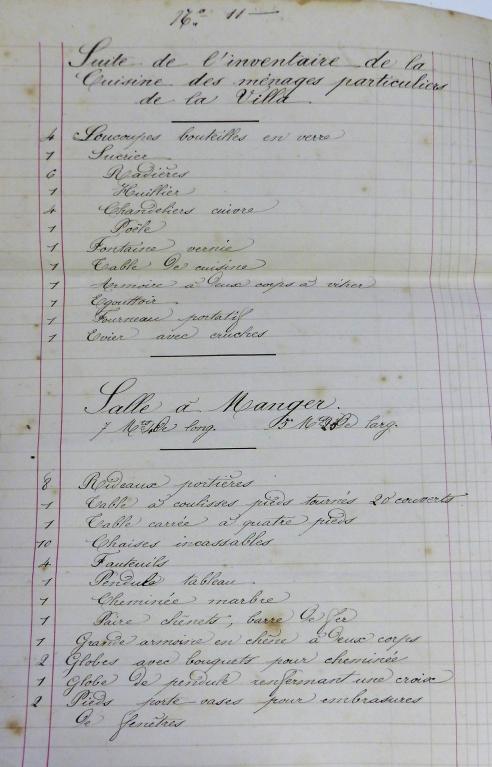 N.° 11
Suite de l'inventaire de la
Cuisine des ménages particuliers
de la Villa.
4 Soucoupes bouteilles en verre
1 Sucrier
6 Radières
1 Huillier
4 Chandeliers cuivre
1 Poêle
1 Fontaine vernie
1 Table de cuisine
1 Armoire à deux corps à vitrer
1 Egouttoir
1 Fourneau portatif
1 Evier avec cruches
Salle à Manger.
7 de long. 5 de larg.
8 Rideaux portières
1 Table à coulisses pieds tournés 20 couverts
1 Table carrée à quatre pieds
10 Chaises incassables
4 Fauteuils
1 Pendule tableau.
1 Cheminée marbre
1 Paire chênets, barre de fer
1 Grande armoire en chêne à deux corps
2 Globes avec bouquets pour cheminée
1 Globe de pendule renfermant une croix
2 Pieds porte-vases pour embrasures
de fenêtres